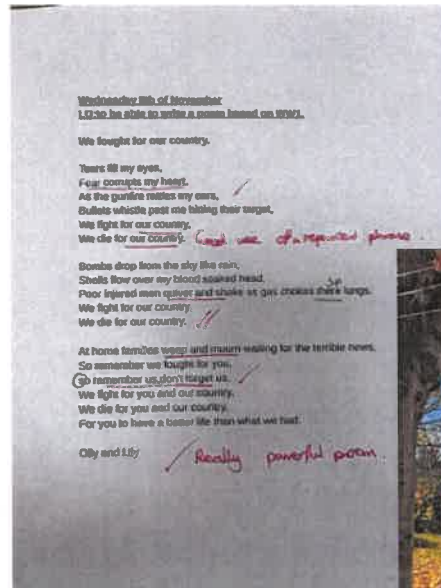 Wednesday 8th of November
LO:to be able to write a poem based on WW1.
We fought for our country.
Tears fill my eyes,
Fear corrupts my heart,
As the gunfire rattles my ears,
Bullets whistle past me hitting their target,
We fight for our country,
We die for our country. Good use of a repeated phrase.
Bombs drop from the sky like rain,
Shells flow over my blood soaked head.
sp
Poor injured men quiver and shake as gas chokes there lungs.
We fight for our country,
We die for our country.
At home families weep and mourn waiting for the terrible news,
So remember we fought for you,
So remember us,don't forget us.
We fight for you and our country,
We die for you and our country.
For you to have a better life than what we had.
Olly and Lily
Really powerful poem.